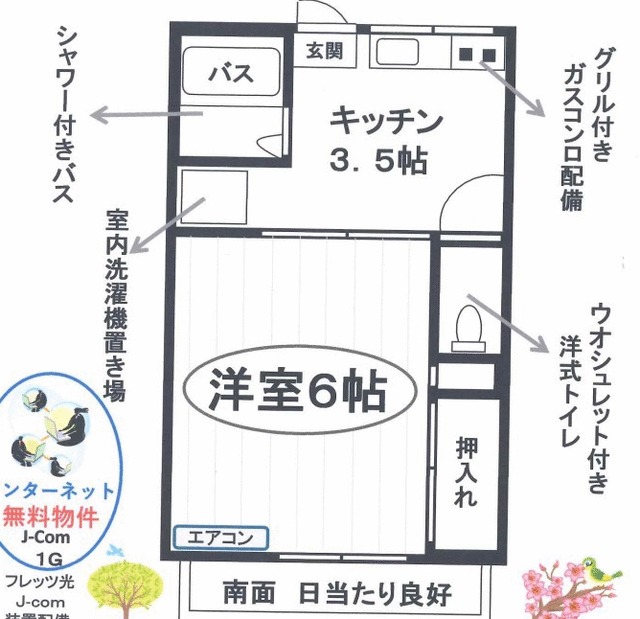 シャワー付きバス
バス
玄関
キッチン
3．5帖
グリル付き
ガスコンロ配備
室内洗濯機置き場
洋室6帖
ウオシュレット付き
洋式トイレ
押入れ
エアコン
南面　日当たり良好
ンターネット
無料物件
J-Com
1G
フレッツ光
J-com